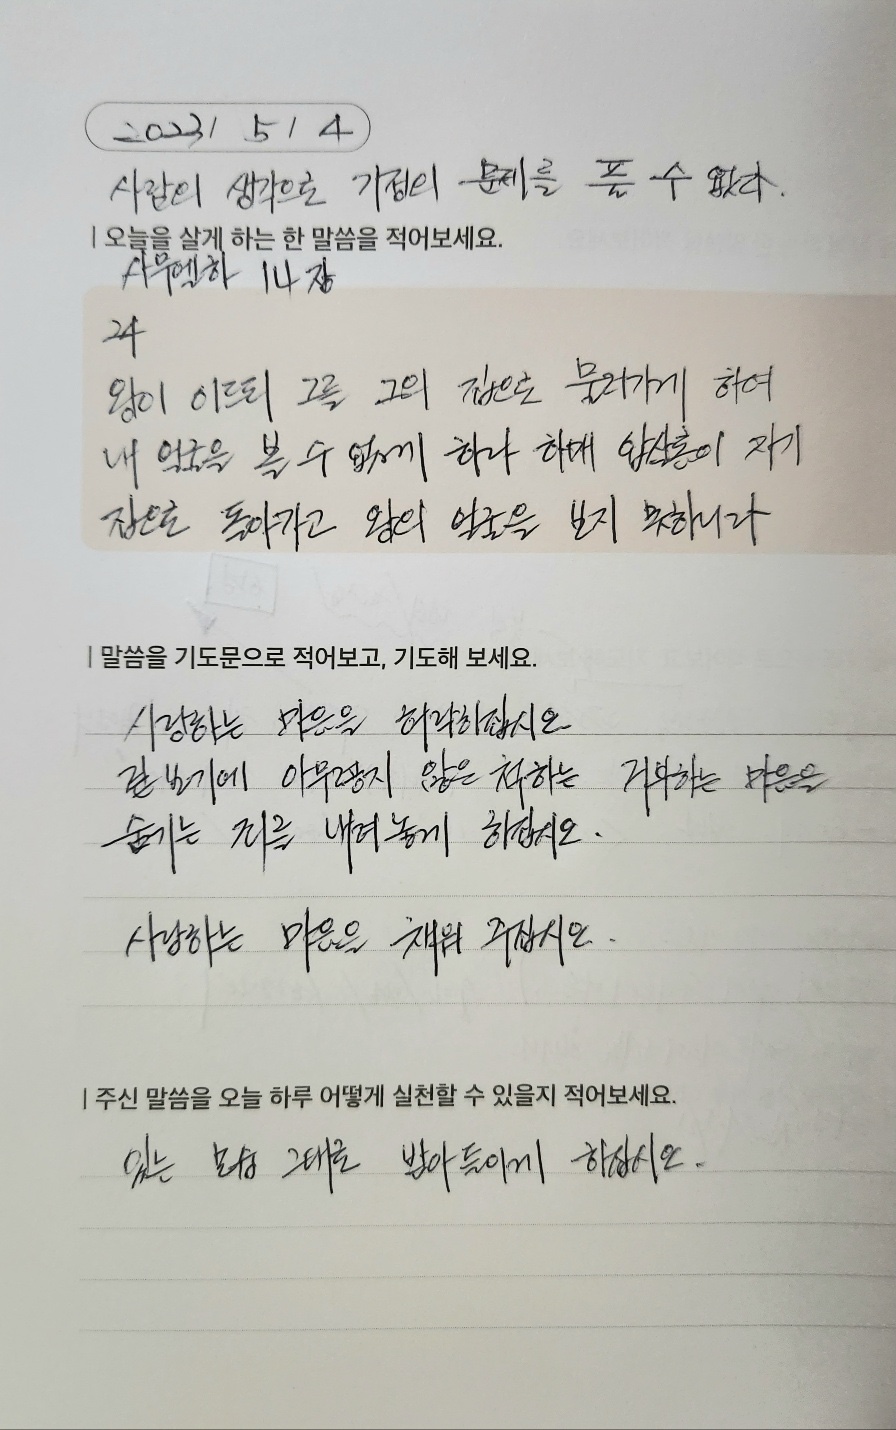 2023/ 5/ 4
사람의 생각으로 가정의 문제를 풀 수 없다.
| 오늘을 살게 하는 한 말씀을 적어보세요.
사무엘하 14장
24
왕이 이르되 그를 그의 집으로 물러가게 하여
내 얼굴을 볼 수 없게 하라 하매 압살롬이 자기
집으로 돌아가고 왕의 얼굴을 보지 못하니라
| 말씀을 기도문으로 적어보고, 기도해 보세요.
사랑하는 마음을 허락하십시오
겉 보기에 아무렇지 않은 척하는 거부하는 마음을
숨기는 죄를 내려놓게 하십시오.
사랑하는 마음을 채워 주십시오.
| 주신 말씀을 오늘 하루 어떻게 실천할 수 있을지 적어보세요.
있는 모습 그대로 받아들이게 하십시오.